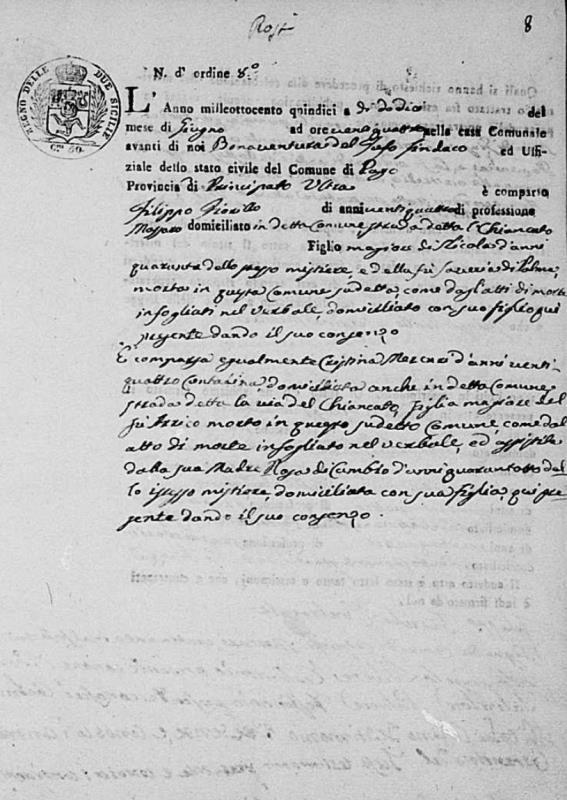 8
REGNO DELLE DUE SICILIE
N. d'ordine 8.º
L'Anno milleottocento quindici a dì dodici del
mese di Giugno ad ore ventiquattro nella casa Comunale
avanti di noi Bonaventura del Sindaco ed Uffi-
ziale dello stato civile del Comune di Pago
Provincia di Principato Ultra è comparso
Filippo Fiorillo di anni ventiquattro di professione
domiciliato in detta Comune strada detta Chiancato
Figlio maggiore di Nicola d'anni
quaranta dello stesso mistiere, e della fu di Palma,
morta in questa Comune sudetta, come dagl'atti di morte
infogliati nel verbale, domiciliato con suo figlio qui
presente dando il suo consenzo
È comparsa egualmente Cristina d'anni venti
quattro Contadina, domiciliata anche in detta Comune
strada detta la via del Chiancato, Figlia maggiore del
fu morto in questo sudetto Comune, come dal
atto di morte infogliato nel verbale, ed assistita
dalla sua Madre Rosa di Cumbio d'anni quarantotto del
lo istesso mistiere, domiciliata con sua figlia, qui pre
sente dando il suo consenzo.